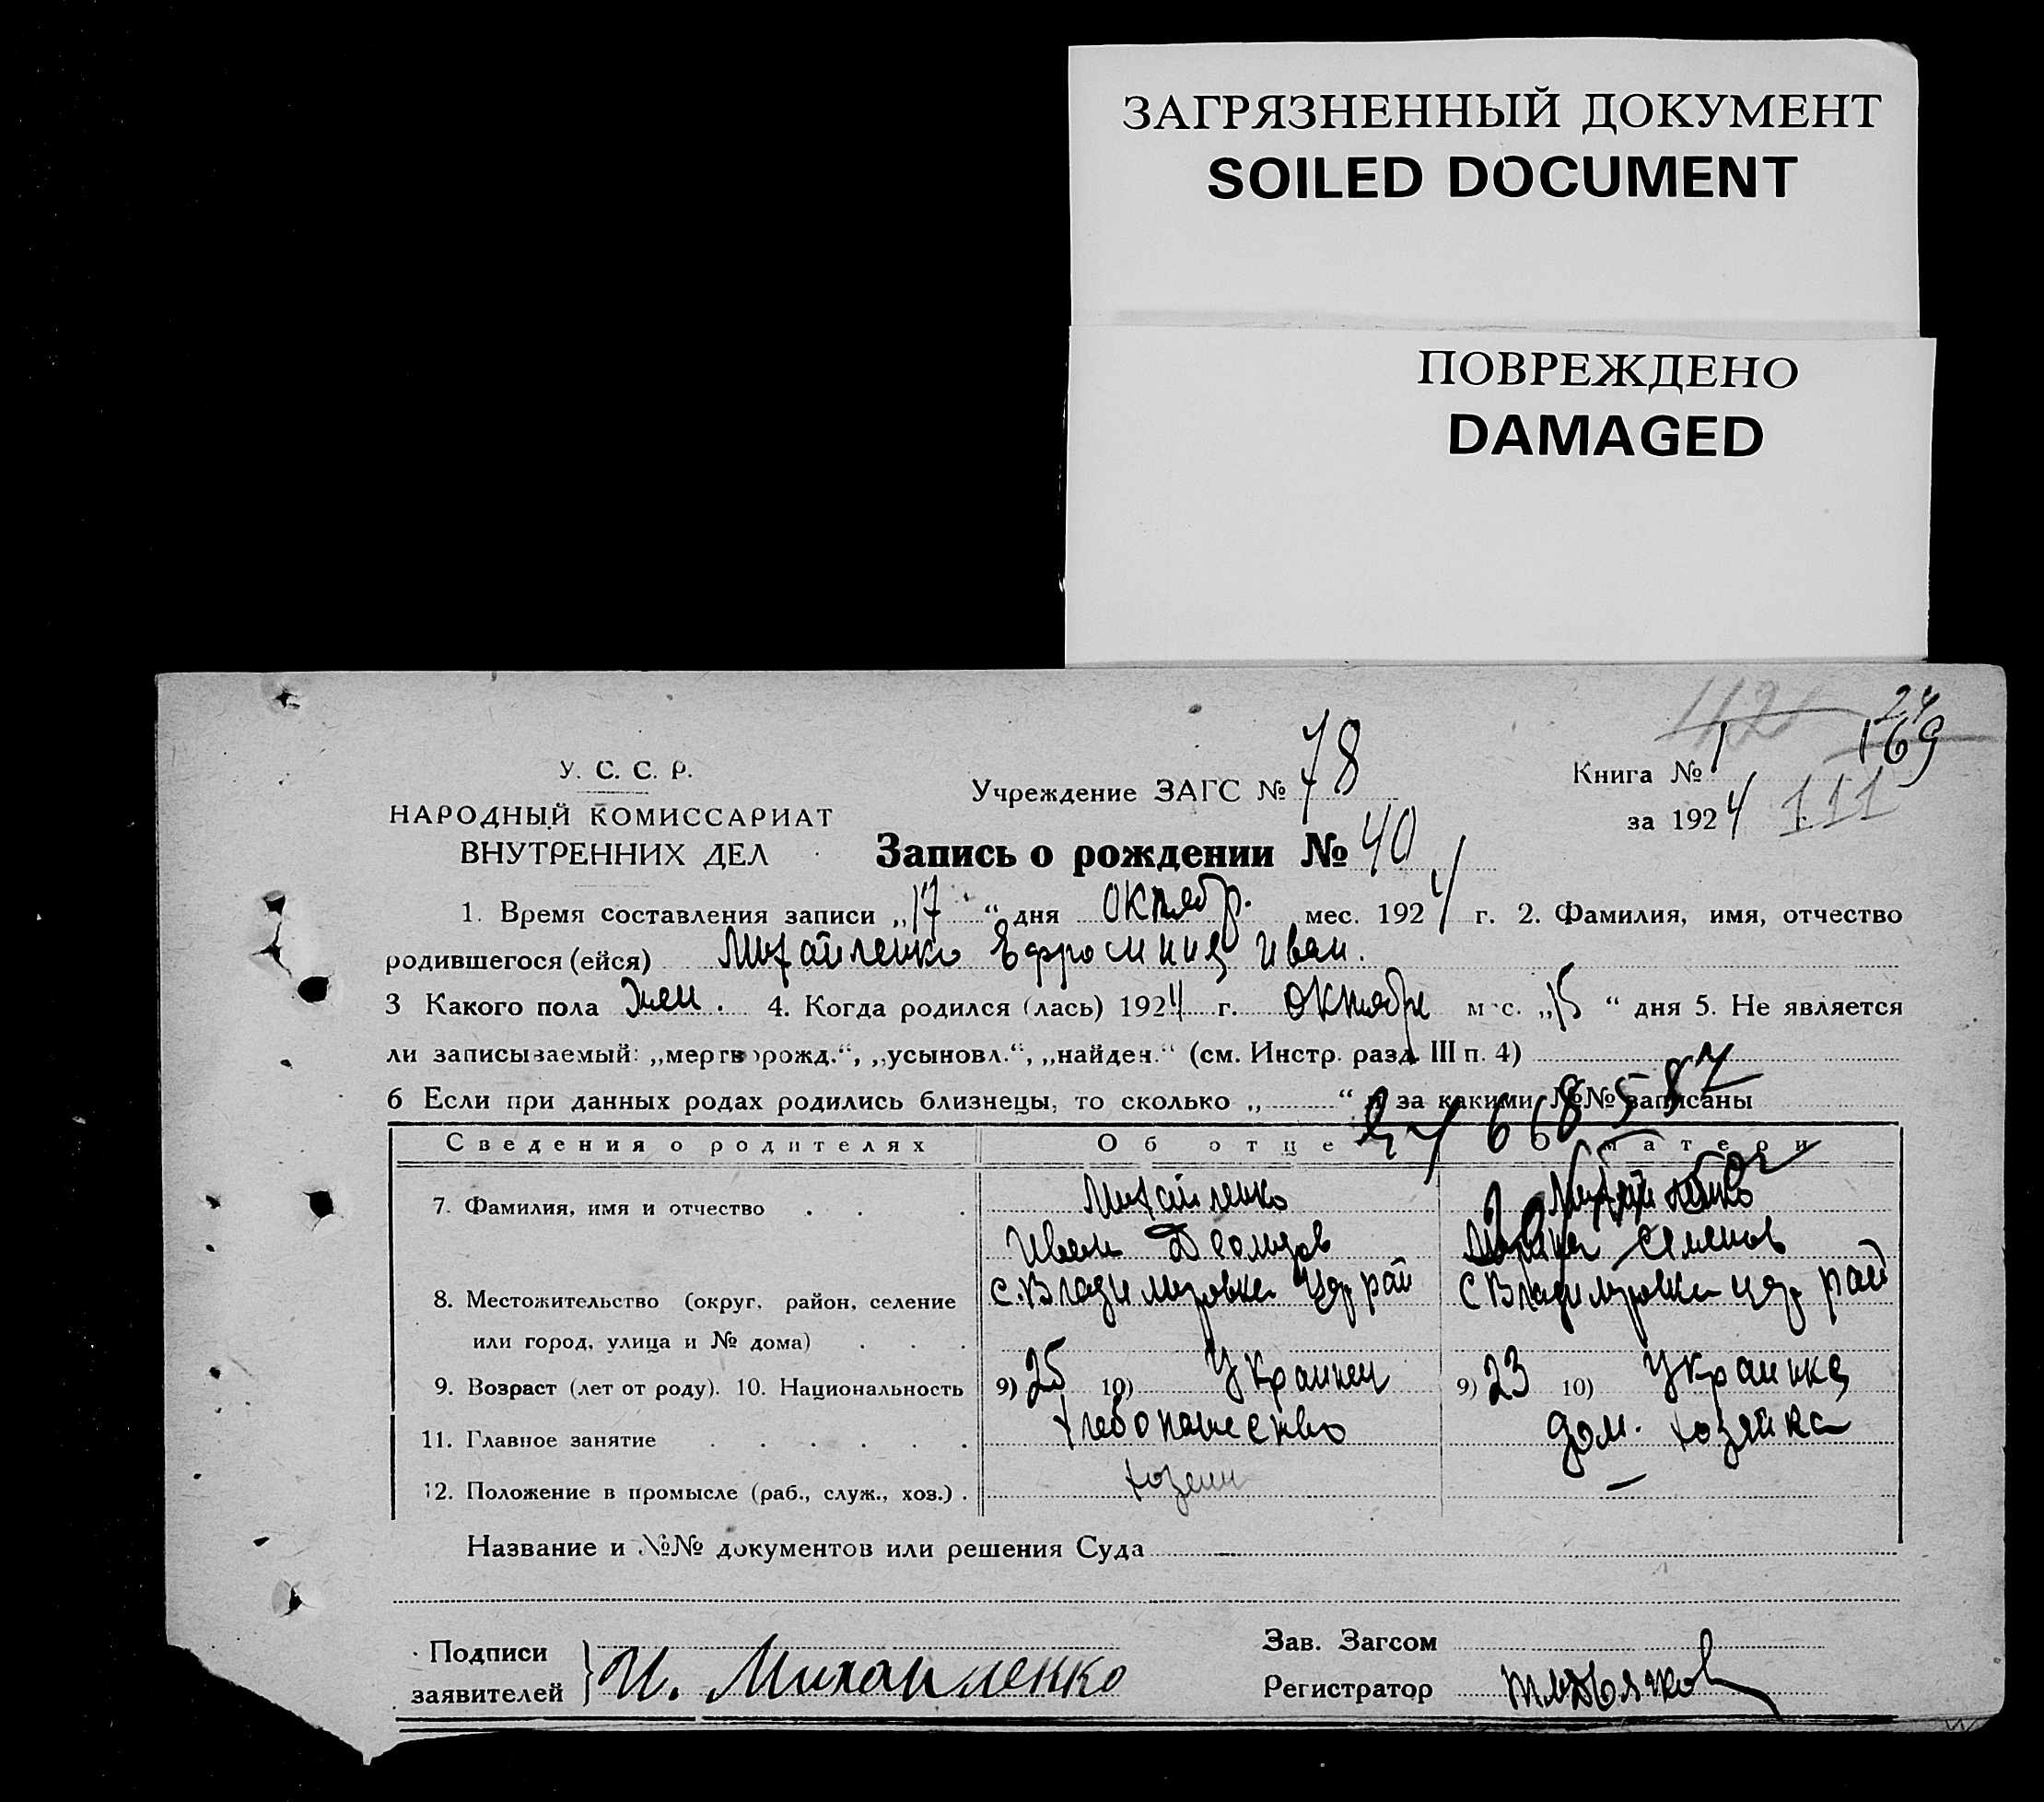 ЗАГРЯЗНЕННЫЙ ДОКУМЕНТ
SOILED DOCUMENT
ПОВРЕЖДЕНО
DAMAGED
24
У. С. С. Р.
Учреждение ЗАГС № 78
Книга № 1 169
НАРОДНЫЙ КОМИССАРИАТ
за 1924 111
ВНУТРЕННИХ ДЕЛ
Запись о рождении № 40
1. Время составления записи „17“ дня октябр. мес. 1924 г. 2. Фамилия, имя, отчество
родившегося (ейся) Михайленко Ефросиния Иван.
3 Какого пола жен. 4. Когда родился (лась) 1924 г. октября мес. „15“ дня 5. Не является
ли записываемый: „мертворожд.“, „усыновл.“, „найден.“ (см. Инстр. разд. III п. 4)
6 Если при данных родах родились близнецы, то сколько „ “ и за какими №№ записаны
Сведения о родителях Об отце О матери
7. Фамилия, имя и отчество Михайленко Михайленко
Иван Семенов
8. Местожительство (округ, район, селение с. Владимировка рай с Владимировка рай
или город, улица и № дома)
9. Возраст (лет от роду). 10. Национальность 9) 25 10) Украинец 9) 23 10) Украинка
11. Главное занятие хлебопашество дом. хозяйка
12. Положение в промысле (раб., служ., хоз.) хозяин —
Название и №№ документов или решения Суда
Подписи
заявителей И. Михайленко
Зав. Загсом
Регистратор